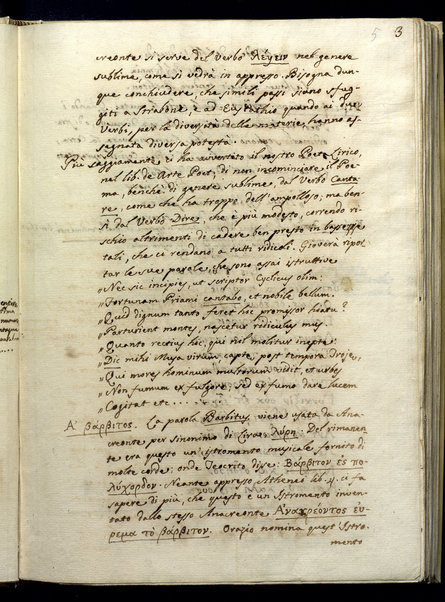 5 3
creonte si serve del Verbo λέγειν nel genere
sublime, come si vedrà in appresso. Bisogna dun-
que conchiudere, che simili passi siano sfug-
giti a Strabone, e ad Eustathio quando ai due
Verbi, per la diversità delle materie, hanno as-
segnata diversa potestà.
Più saggiamente ci ha avvertito il nostro Poeta Lirico,
nel lib. de Arte Poet. di non incominciare il Poe-
ma, benchè di genere sublime, dal Verbo Canta-
re, come che ha troppo dell'ampolloso, ma ben-
sì dal Verbo Dire, che è più modesto, correndo ri-
schio altrimenti di cadere ben presto in bassezze
tali, che ci rendano a tutti ridicoli. Gioverà ripor-
tar le sue parole, che sono assai istruttive
„ Nec sic incipies, ut scriptor Cyclicus olim:
„ Fortunam Priami cantabo, et nobile bellum.
„ Quid dignum tanto feret hic promissor hiatu?
„ Parturient montes, nascetur ridiculus mus.
„ Quanto rectius hic, qui nil molitur inepte:
„ Dic mihi Musa virum, captae post tempora Trojae,
„ Qui mores hominum multorum vidit, et urbes
„ Non fumum ex fulgore, sed ex fumo dare lucem
„ Cogitat etc.
Α΄ βάρβιτος. La parola Barbitus viene usata da Ana-
creonte per sinonimo di Lyrae, λύρη. Del rimanen-
te era questo un istromento musicale fornito di
molte corde; onde Teocrito disse: Βάρβιτον ἐς πο-
λύχορδον. Neante appresso Atheneo lib. 4. ci fa
sapere di più, che questo è un Istrimento inven-
tato dallo stesso Anacreonte Ἀνακρέοντος εὕ-
ρεμα τὸ βάρβιτον. Orazio nomina quest'Istro-
mento